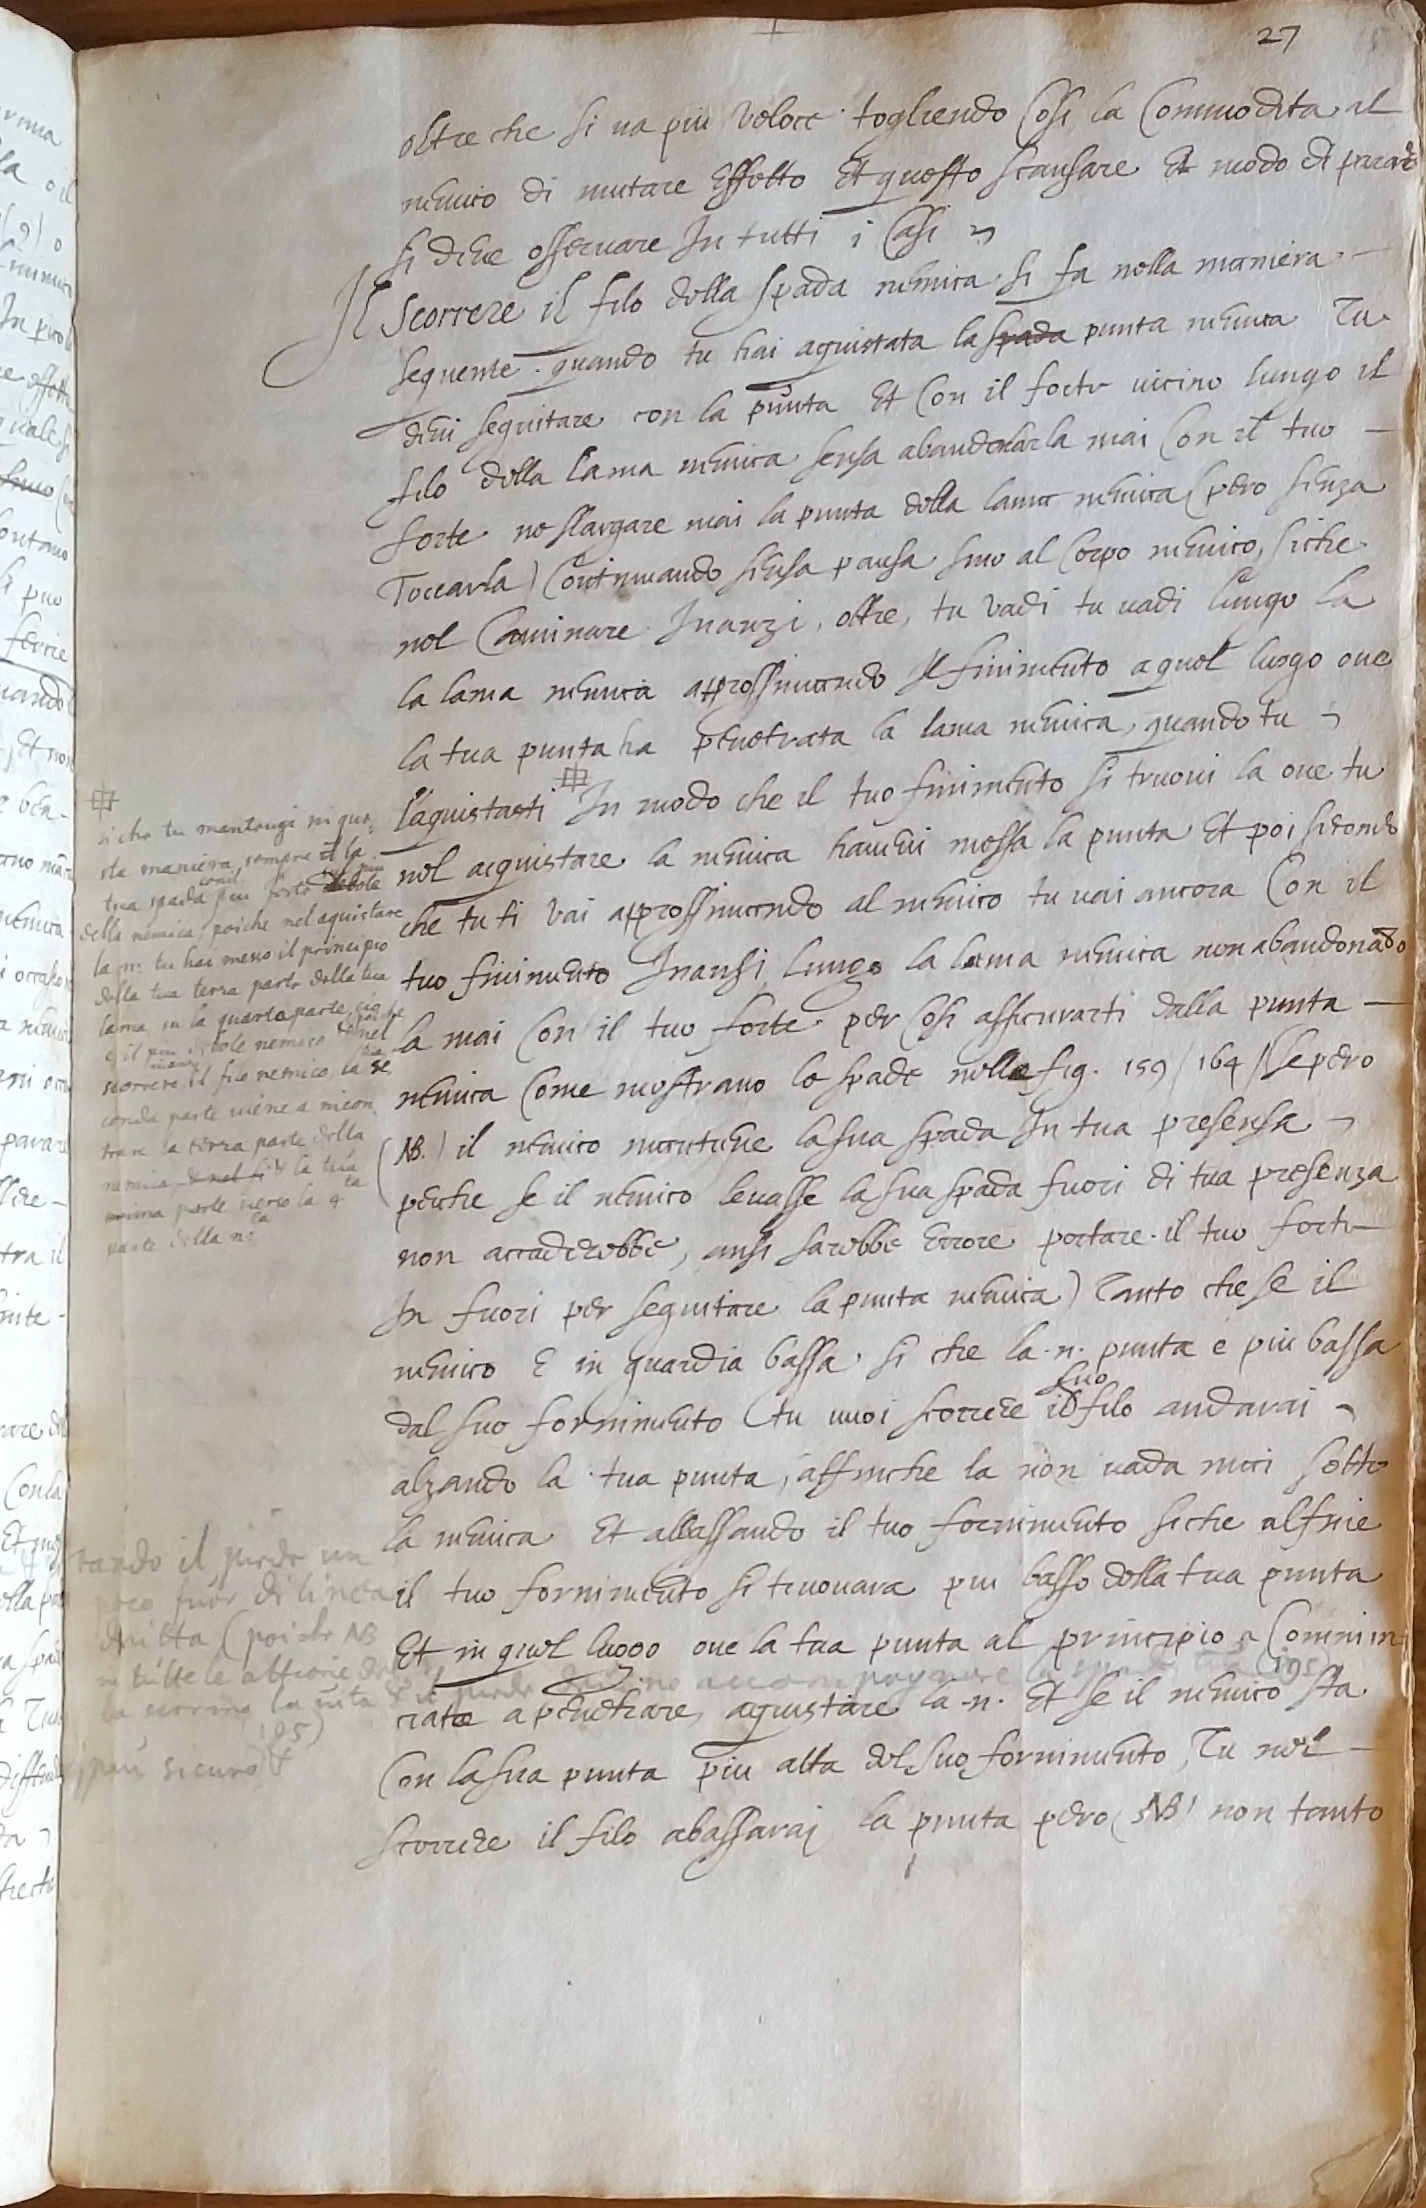 27
oltre che si va più veloce togliendo Cosi la Commodita al
nemico di mutare Effetto Et questo scansare Et modo di parare
si deve osservare In tutti i Casi
Il Scorrere il filo della spada nemica si fa nella maniera
sequente. quando tu hai aquistata la spada punta nemica Tu
devi sequitare con la punta Et Con il forte vicino lungo il
filo della lama nemica sensa abandonarla mai Con il tuo
forte ne slargare mai la punta della lama nemica (pero sienza
Toccarla) Continuando siensa pausa sino al Corpo nemico, siche
nel Caminare Inanzi, oltre, tu vadi tu vadi lungo la
la lama nemica approssimando Il finimento a quel luogo ove
la tua punta ha penetrata la lama nemica, quando tu
l'aquistasti In modo che il tuo finimento si truovi la ove tu
nel acquistare la nemica havevi messa la punta Et poi secondo
che tu ti vai approssimando al nemico tu vai ancora Con il
tuo finimento Inansi lungo la lama nemica non abandonādo
la mai Con il tuo forte per Cosi assicurarti dalla punta
nemica Come mostrano le spade nelle fig. 159 / 164 / (se pero
(NB.) il nemico mantiene la sua spada In tua presensa
perche se il nemico levasse la sua spada fuori di tua presenza
non accaderebbe, ansi sarebbe Errore portare il tuo forte
In fuori per sequitare la punta nemica) Tanto che se il
nemico E in guardia bassa si che la .n. punta e più bassa
dal suo fornimento (tu vuoi scorrere il suo filo andarai
alzando la tua punta, affinche la non vada mai sotto
la nemica Et abbassando il tuo fornimento siche alfine
il tuo fornimento si truovara piu basso della tua punta
Et in quel luogo ove la tua punta al principio a Commin
ciato a penetrare, aquistare la .n. Et se il nemico sta
Con la sua punta piu alta del suo fornimento, Tu nel
scorrere il filo abassarai la punta pero (NB) non tanto
si che tu mantengi in que
sta maniera sempre la
tua spada con il piu forte piu debole
della nemica, poiche nel aquistare
la n: tu hai messo il principio
della tua terza parte della tua
lama in la quarta parte, cio
e il piu debole nemico et nel
scorrere il filo nemico la se
conda parte viene a incon
trare la terza parte della
nemica, et la tua
prima parte verso la 4ta
parte della n:
tando il piede un
poco fuor di linea
dritta (poiche NB
in tutte le attione
la vita accompagnare (195)
(195)
piu sicuro